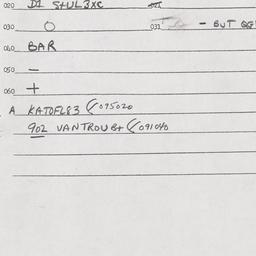 020 D1 StUL3XC
030 O 031 - BUT
040 BAR
050 -
060 +
A KATOFL83 095020
902 VANTROUBt 091040